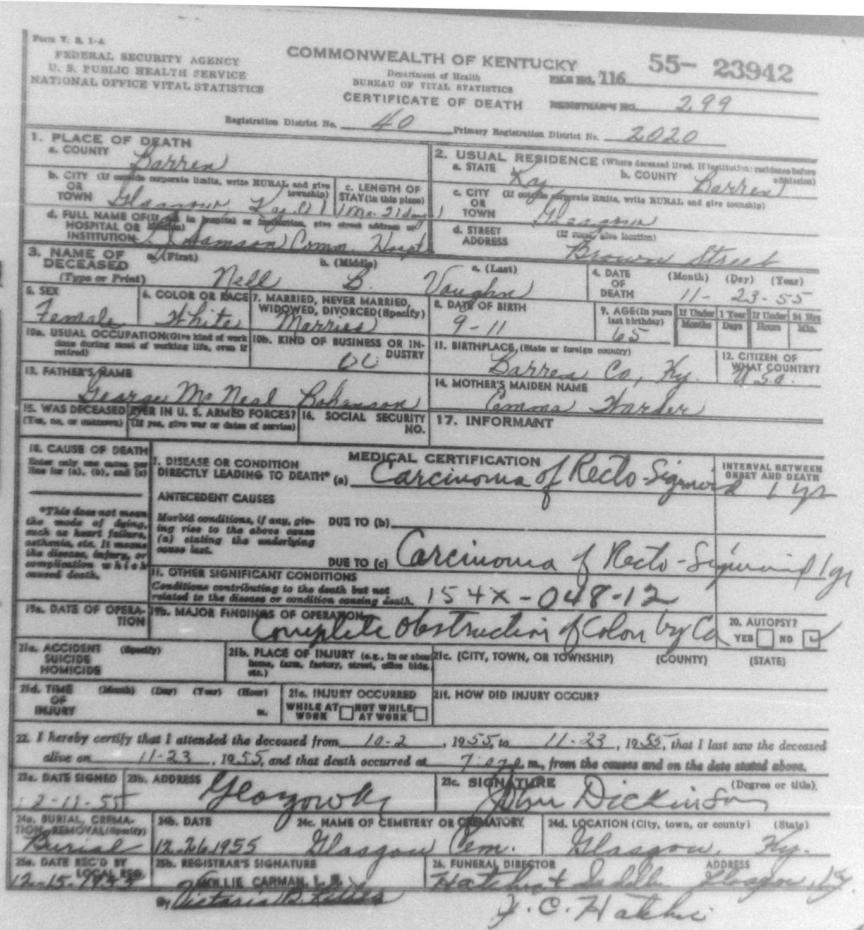 Form V. S. 1-A
FEDERAL SECURITY AGENCY
U. S. PUBLIC HEALTH SERVICE
NATIONAL OFFICE VITAL STATISTICS
COMMONWEALTH OF KENTUCKY
Department of Health
BUREAU OF VITAL STATISTICS
CERTIFICATE OF DEATH
FILE NO. 116 55- 23942
REGISTRAR'S NO. 299
Registration District No. 40 Primary Registration District No. 2020
1. PLACE OF DEATH
a. COUNTY Barren
b. CITY (If outside corporate limits, write RURAL and give township)
OR TOWN Glasgow Ky.
c. LENGTH OF STAY (in this place) 1 Mo. 21 da
d. FULL NAME OF HOSPITAL OR INSTITUTION Samson Comm. Hospt
2. USUAL RESIDENCE (Where deceased lived. If institution: residence before admission)
a. STATE Ky b. COUNTY Barren
c. CITY OR TOWN (If outside corporate limits, write RURAL and give township) Glasgow
d. STREET ADDRESS (If rural, give location) Brown Street
3. NAME OF DECEASED (Type or Print)
a. (First) Nell b. (Middle) B. c. (Last) Vaughn
4. DATE OF DEATH (Month) (Day) (Year) 11-23-55
5. SEX Female
6. COLOR OR RACE White
7. MARRIED, NEVER MARRIED, WIDOWED, DIVORCED (Specify) Married
8. DATE OF BIRTH 9-11
9. AGE (In years last birthday) 65
If Under 1 Year Months Days
If Under 24 Hrs Hours Min.
10a. USUAL OCCUPATION (Give kind of work done during most of working life, even if retired)
10b. KIND OF BUSINESS OR INDUSTRY
11. BIRTHPLACE (State or foreign country) Barren Co, Ky.
12. CITIZEN OF WHAT COUNTRY? U.S.a.
13. FATHER'S NAME George McNeal
14. MOTHER'S MAIDEN NAME Emma Harder
15. WAS DECEASED EVER IN U. S. ARMED FORCES?
(Yes, no, or unknown) (If yes, give war or dates of service)
16. SOCIAL SECURITY NO.
17. INFORMANT
18. CAUSE OF DEATH
Enter only one cause per line for (a), (b), and (c)
*This does not mean the mode of dying, such as heart failure, asthenia, etc. It means the disease, injury, or complication which caused death.
MEDICAL CERTIFICATION
INTERVAL BETWEEN ONSET AND DEATH
I. DISEASE OR CONDITION DIRECTLY LEADING TO DEATH* (a) Carcinoma of Recto-Sigmoid 1 yr
ANTECEDENT CAUSES
Morbid conditions, if any, giving rise to the above cause (a) stating the underlying cause last.
DUE TO (b)
DUE TO (c) Carcinoma of Recto-Sigmoid 1 yr
II. OTHER SIGNIFICANT CONDITIONS
Conditions contributing to the death but not related to the disease or condition causing death. 154X-048-12
19a. DATE OF OPERATION
19b. MAJOR FINDINGS OF OPERATION Complete Obstruction of Colon by Ca
20. AUTOPSY? YES NO
21a. ACCIDENT SUICIDE HOMICIDE (Specify)
21b. PLACE OF INJURY (e.g., in or about home, farm, factory, street, office bldg. etc.)
21c. (CITY, TOWN, OR TOWNSHIP) (COUNTY) (STATE)
21d. TIME OF INJURY (Month) (Day) (Year) (Hour) m.
21e. INJURY OCCURRED WHILE AT WORK NOT WHILE AT WORK
21f. HOW DID INJURY OCCUR?
22. I hereby certify that I attended the deceased from 10-2, 1955, to 11-23, 1955, that I last saw the deceased
alive on 11-23, 1955, and that death occurred at m., from the causes and on the date stated above.
23a. DATE SIGNED 12-11-55
23b. ADDRESS
23c. SIGNATURE (Degree or title) John Dickinson
24a. BURIAL, CREMATION, REMOVAL (Specify) Burial
24b. DATE
24c. NAME OF CEMETERY OR CREMATORY Glasgow Cem.
24d. LOCATION (City, town, or county) (State) Glasgow, Ky.
25a. DATE REC'D BY LOCAL REG. 12-15-1955
25b. REGISTRAR'S SIGNATURE
MOLLIE CARMAN, L. R.
By Victoria B.
26. FUNERAL DIRECTOR ADDRESS
Glasgow, Ky.